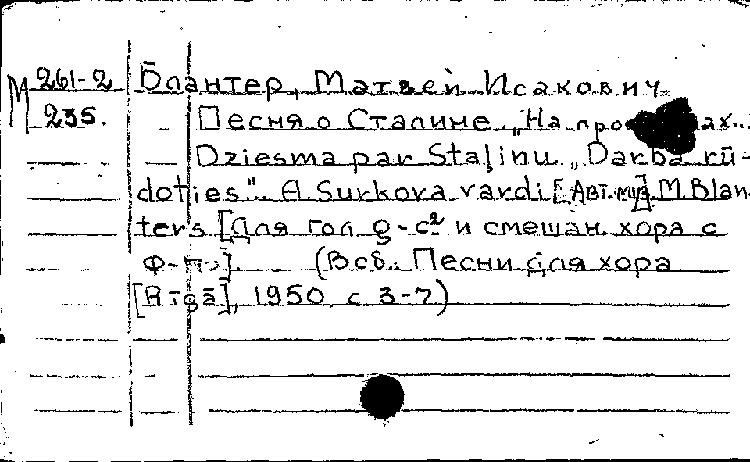 М 261-2
235.
Блантер, Матвей Исакович
Песня о Сталине „На ...ах..
Dziesma par Staļinu „Darba rū-
doties". A Surkova vardi [Авт. муз. M. Blan-
ters [Для гол g-c² и смешан. хора с
ф-п.]. (В сб.: Песни для хора
[Rīgā], 1950 с 3-7)